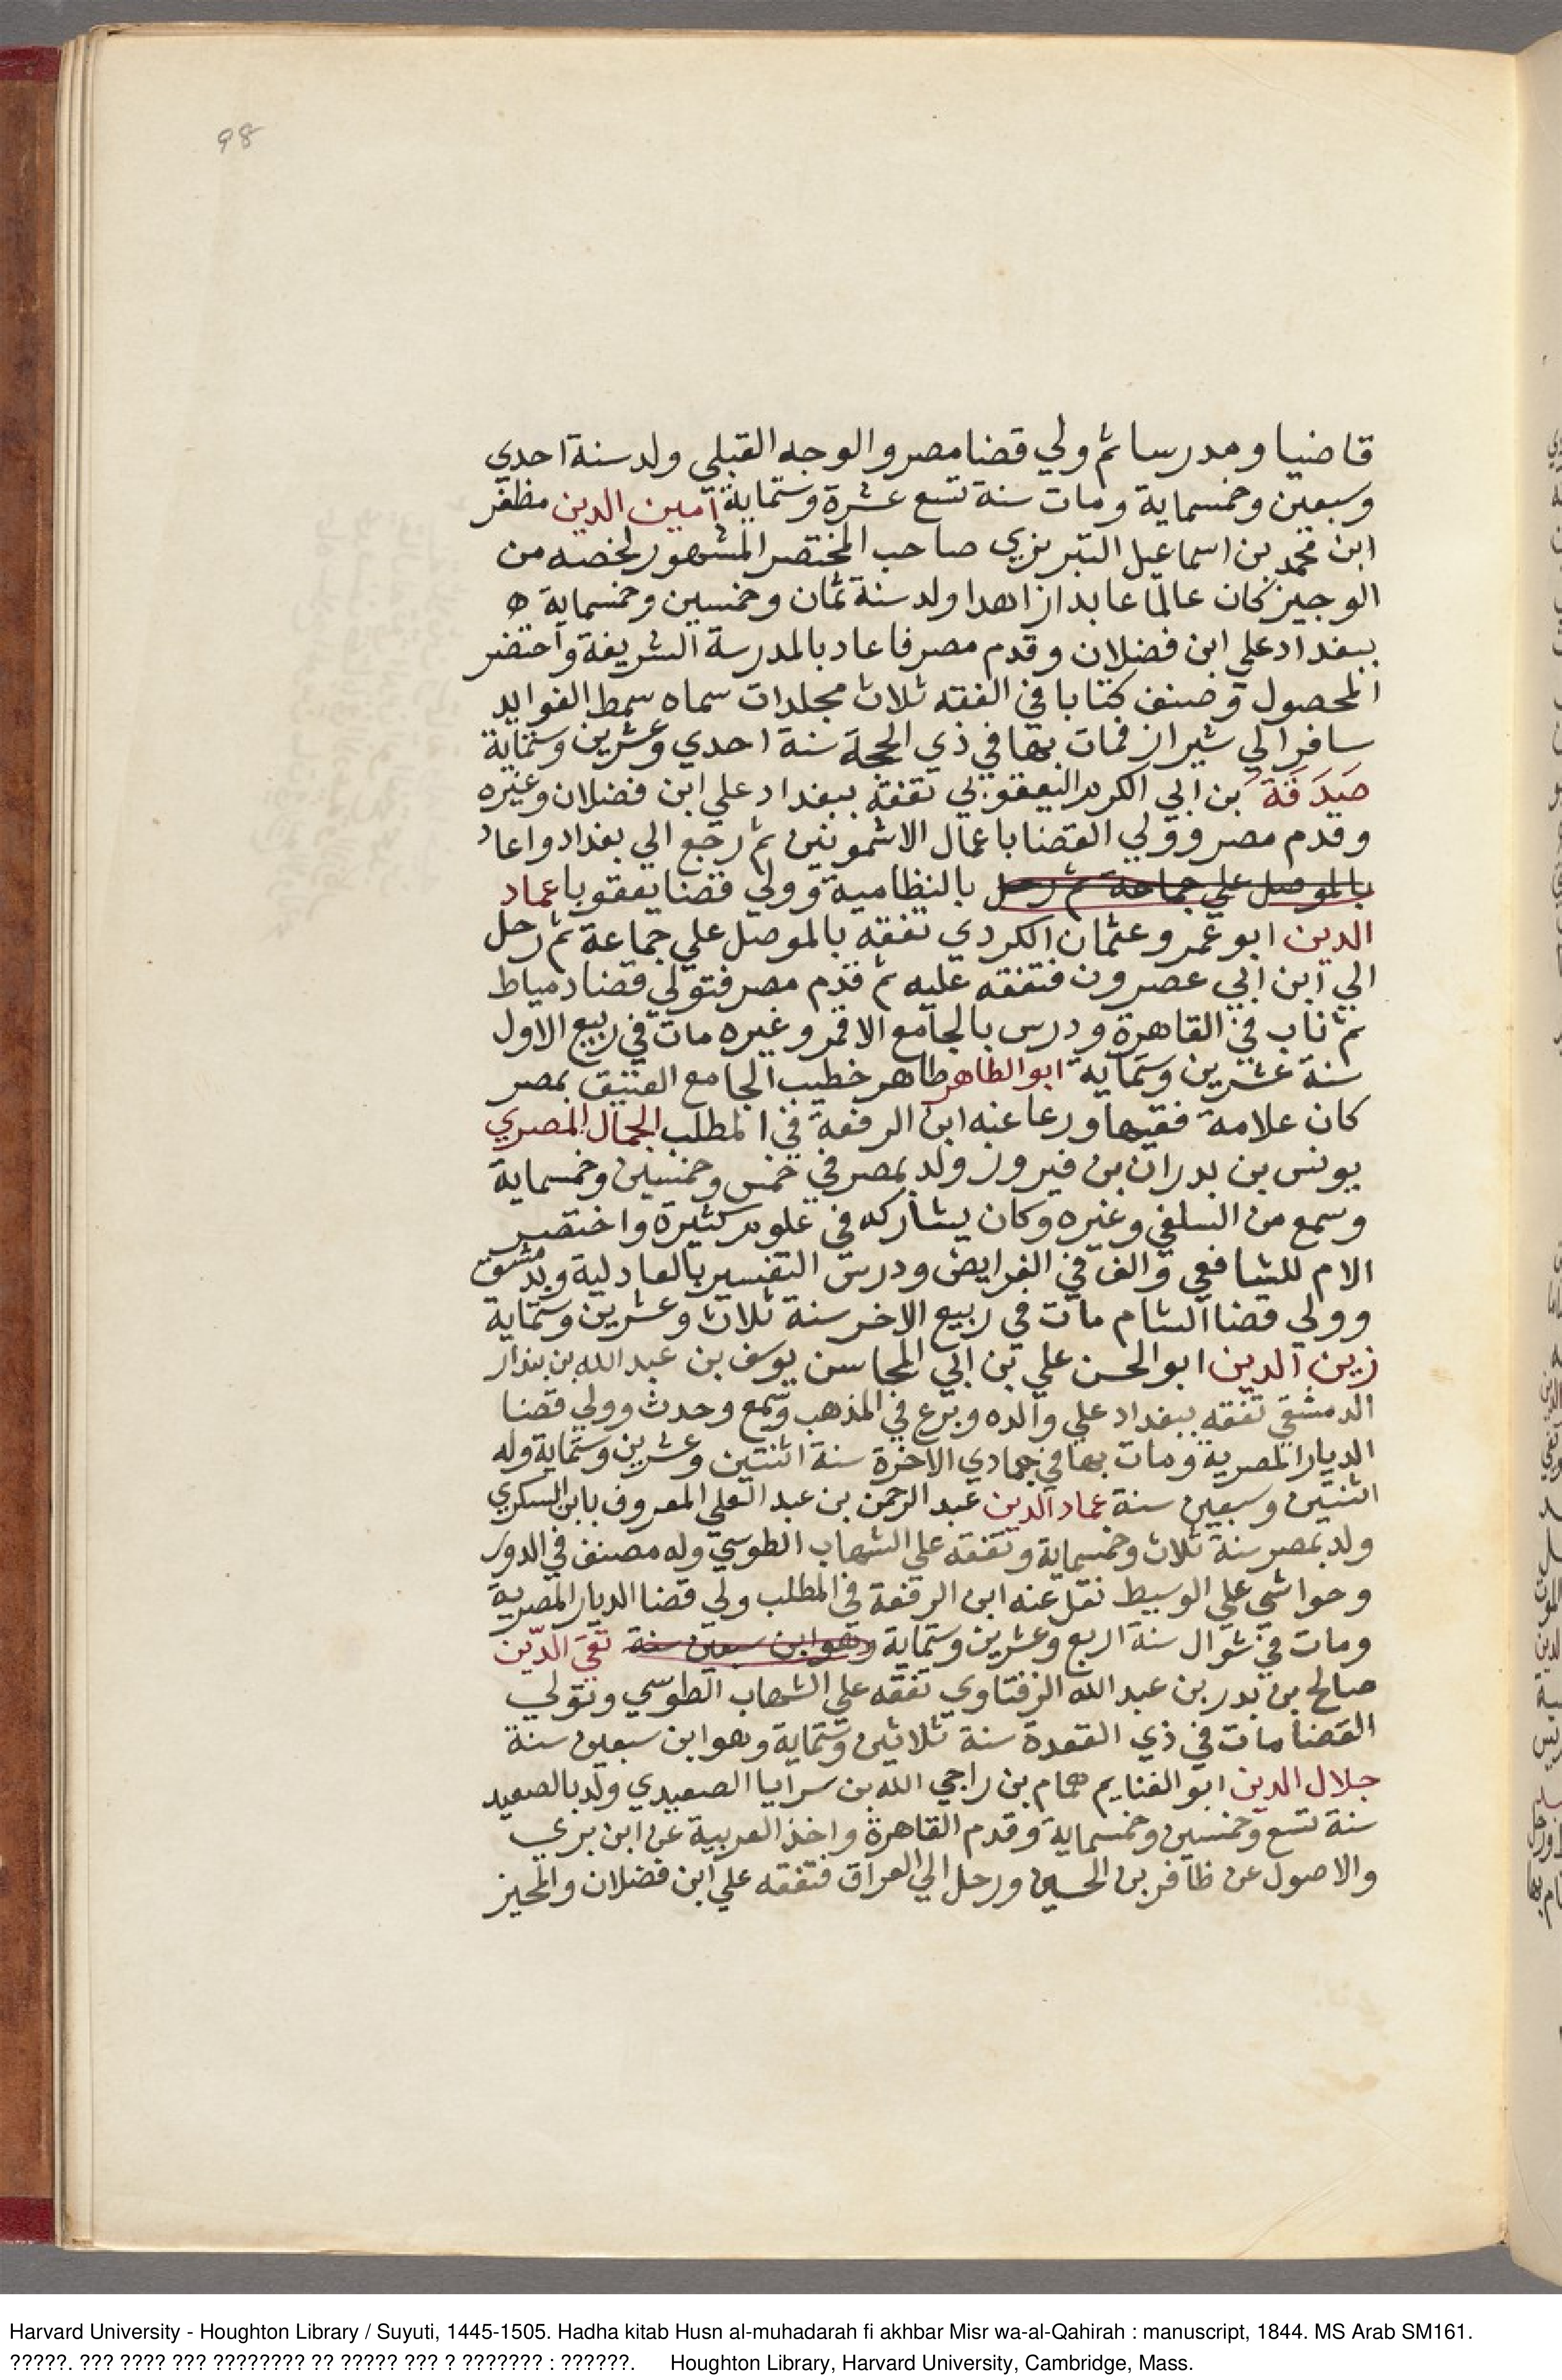 98
قاضيا ومدرسا ثم ولي قضا مصر والوجه القبلي ولد سنة احدي
وسبعين وخمسماية ومات سنة تسع عشرة وستماية امين الدين مظفر
ابن محمد بن اسماعيل التبريزي صاحب المختصر المشهور لخصه من
الوجيز كان عالما عابدا زاهدا ولد سنة ثمان وخمسين وخمسماية
ببغداد علي ابن فضلان وقدم مصر فاعاد بالمدرسة الشريفة واختصر
المحصول وصنف كتابا في الفقه ثلاث مجلدات سماه سمط الفوايد
سافر الي شيراز فمات بها في ذي الحجة سنة احدي وعشرين وستماية
صَدَقَة بن ابي الكرم اليعقوبي تفقه ببغداد علي ابن فضلان وغيره
وقدم مصر وولي القضا باعمال الاشمونين ثم رجع الي بغداد واعاد
بالموصل علي جماعة ثم رحل بالنظامية وولي قضا يعقوبا عماد
الدين ابو عمرو عثمان الكردي تفقه بالموصل علي جماعة ثم رحل
الي ابن ابي عصرون فتفقه عليه ثم قدم مصر فتولي قضا دمياط
ثم ناب في القاهرة ودرس بالجامع الاقمر وغيره مات في ربيع الاول
سنة عشرين وستماية ابو الطاهر طاهر خطيب الجامع العتيق بمصر
كان علامة فقيها ورعا عنه ابن الرفعة في المطلب الجمال المصري
يونس بن بدران بن فيروز ولد بمصر في خمس وخمسين وخمسماية
وسمع من السلفي وغيره وكان يشاركه في علوم كثيرة واختصر
الام للشافعي والف في الفرايض ودرس التفسير بالعادلية وبدمشق
وولي قضا الشام مات في ربيع الاخر سنة ثلاث وعشرين وستماية
زين الدين ابو الحسن علي بن ابي المحاسن يوسف بن عبد الله بن بندار
الدمشقي تفقه ببغداد علي والده وبرع في المذهب وسمع وحدث وولي قضا
الديار المصرية ومات بها في جمادي الاخرة سنة اثنتين وعشرين وستماية وله
اثنتين وسبعين سنة عماد الدين عبد الرحمن بن عبد العلي المعروف بابن السكري
ولد بمصر سنة ثلاث وخمسماية وتفقه علي الشهاب الطوسي وله مصنف في الدور
وحواشي علي الوسيط نقل عنه ابن الرفعة في المطلب ولي قضا الديار المصرية
ومات في شوال سنة اربع وعشرين وستماية وهو ابن سبعين سنة تقي الدين
صالح بن بدر بن عبد الله الزفتاوي تفقه علي الشهاب الطوسي وتولي
القضا مات في ذي القعدة سنة ثلاثين وستماية وهو ابن سبعين سنة
جلال الدين ابو الغنايم همام بن راجي الله بن سرايا الصعيدي ولد بالصعيد
سنة تسع وخمسين وخمسماية وقدم القاهرة واخذ العربية عن ابن بري
والاصول عن ظافر بن الحسين ورحل الي العراق فتفقه علي ابن فضلان والمجيز
Harvard University - Houghton Library / Suyuti, 1445-1505. Hadha kitab Husn al-muhadarah fi akhbar Misr wa-al-Qahirah : manuscript, 1844. MS Arab SM161.
?????. ??? ???? ??? ???????? ?? ????? ??? ? ??????? : ??????. Houghton Library, Harvard University, Cambridge, Mass.